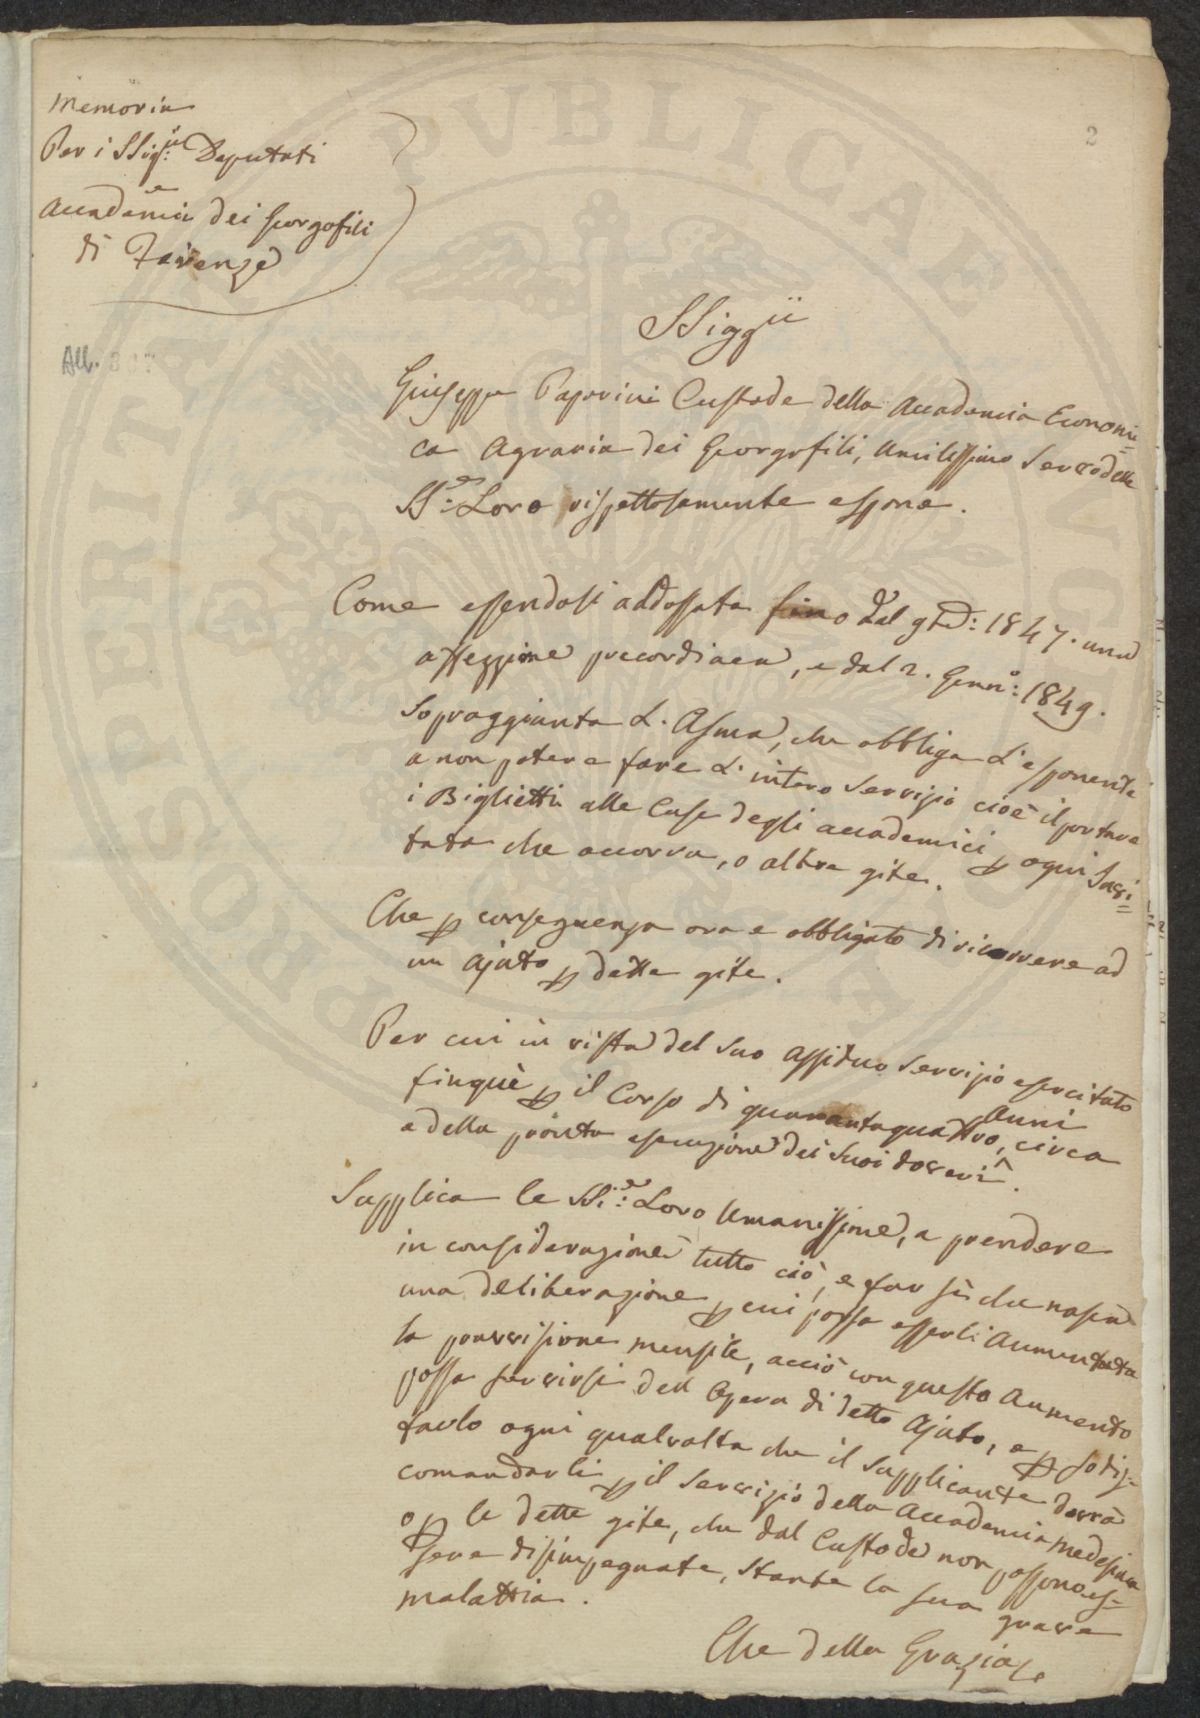 Memoria
Per i SSig:ri Deputati
Accademia dei Georgofili
di Firenze
2
SSiggri
Giuseppe Paporini Custode della Accademia Economi=
ca Agraria dei Georgofili, Umilissimo Servo delle
SS:e Loro rispettosamente espone.
Come essendosi addossata fino dal 1847. una
affezzione precordiaca, e dal 2. Genn:o 1849.
Sopraggiunta L'Asma, che obbliga L'esponente
a non potere fare L'intero Servizio cioè il portare
i Biglietti alle Case degli accademici p ogni Sedu=
tata che accorra, o altre gite.
Che p conseguenza ora e obbligato di ricorrere ad
un ajuto p dette gite.
Per cui in vista del Suo Assiduo Servizio esercitato
finqui p il Corso di quarantaquattro, circa
Anni
e della pronta esecuzione dei Suoi doveri ^.
Supplica le SSi:e Loro Umanissime, a prendere
in considerazione tutto ciò, e far sì che nasca
una deliberazione p cui possa esserli Aumentata
la provvisione mensile, acciò con questo Aumento
possa servirsi dell Opera di detto Ajuto, e p sodis=
farlo ogni qualvolta che il Supplicante dovrà
comandarli p il Servizio della Accademia Medesima
o p le dette gite, che dal Custode non possono es=
sere disimpegnate, stante la sua grave
malattia.
Che della Grazia
All.